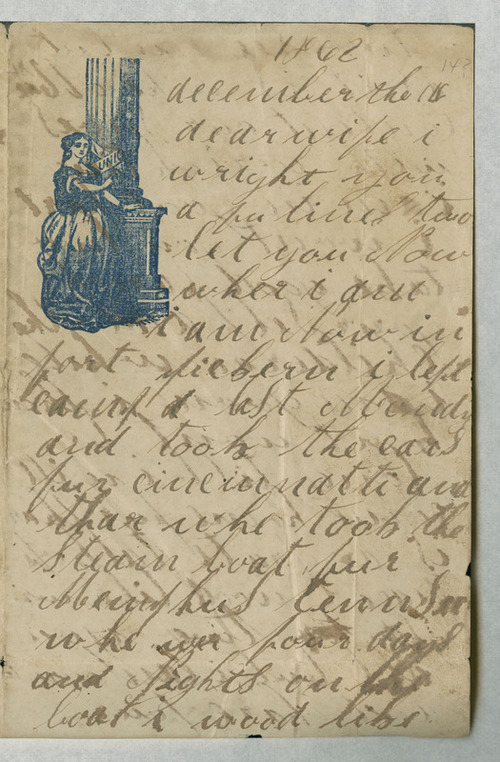 1862
142
december the 18
dear wife i
wright you
UNION
a fu lines two
let you Now
wher i am
i am Now in
fort pickern i left
camp a last Monday
and took the cars
fur cincinnatti and
thar whe took the
Steam boat fur
Memphus tenn
whe wer four days
and Nights on the
boat i wood like